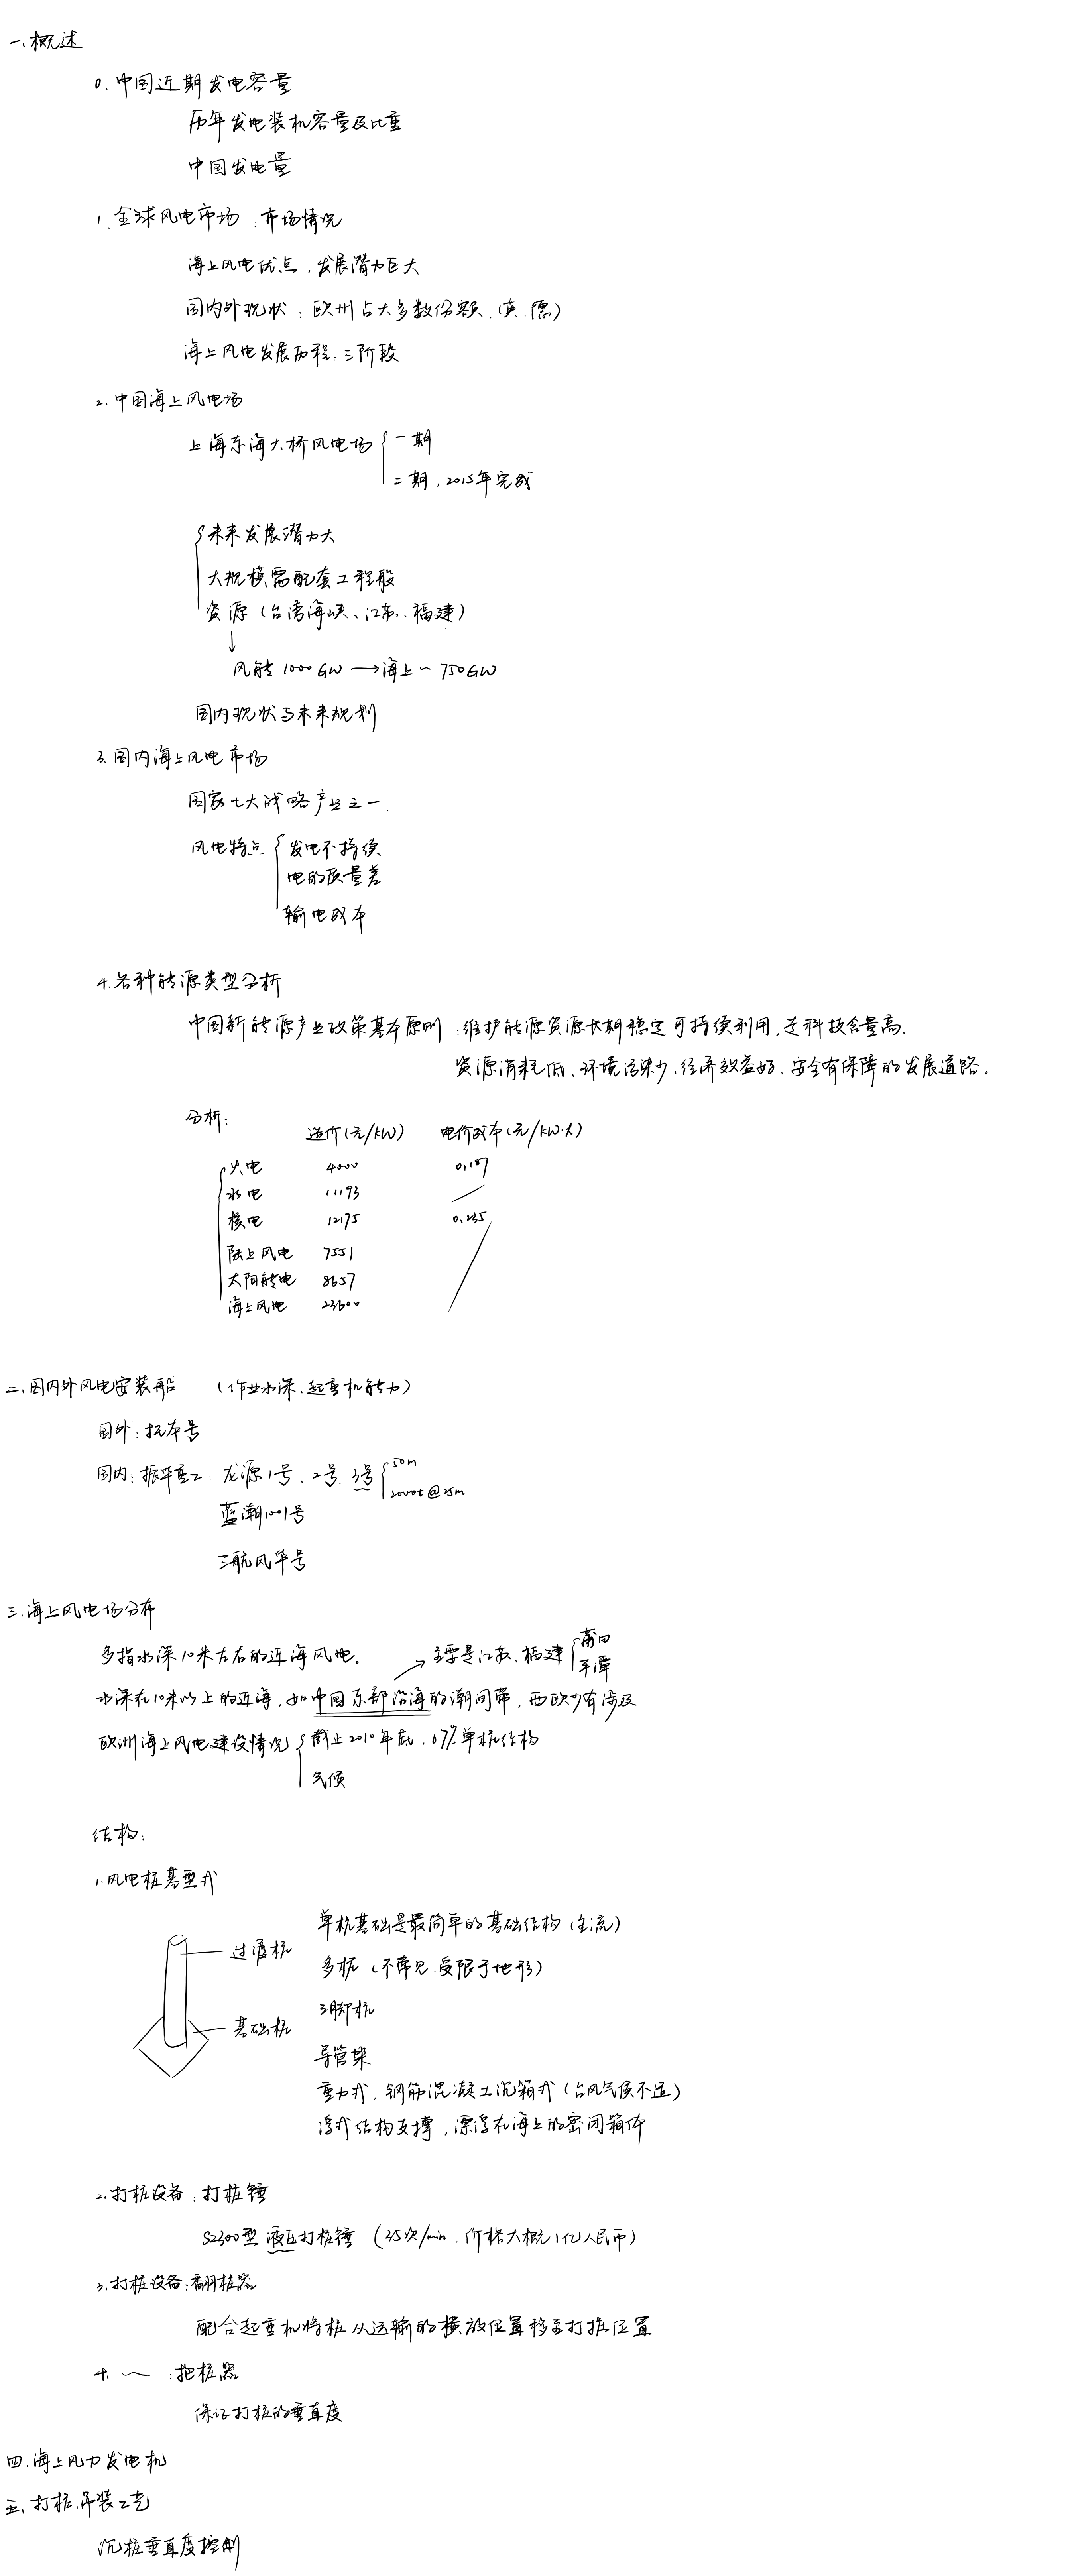 一、概述
0. 中国近期发电容量
历年发电装机容量及比重
中国发电量
1. 全球风电市场：市场情况
海上风电优点，发展潜力巨大
国内外现状：欧州占大多数份额（英、德）
海上风电发展历程：三阶段
2. 中国海上风电场
上海东海大桥风电场 一期
二期，2015年完成
未来发展潜力大
大规模需配套工程船
资源（台湾海峡、江苏、福建）
↓
风能 1000GW → 海上~750GW
国内现状与未来规划
3. 国内海上风电市场
国家七大战略产业之一
风电特点 发电不持续
电的质量差
输电成本
4. 各种能源类型分析
中国新能源产业政策基本原则：维护能源资源长期稳定可持续利用，走科技含量高、
资源消耗低、环境污染少、经济效益好、安全有保障的发展道路。
分析： 造价(元/kW) 电价成本(元/kW·h)
火电 4000 0.187
水电 11193 /
核电 12175 0.235
陆上风电 7551
太阳能电 8657
海上风电 23600
二、国内外风电安装船 （作业水深、起重机能力）
国外：托本号
国内：振华重工：龙源1号、2号、3号 50m
2000t@25m
蓝潮1001号
三航风华号
三、海上风电场分布
多指水深10米左右的近海风电。 → 主要是江苏、福建 莆田
平潭
水深在10米以上的近海，如中国东部沿海的潮间带，西欧少有涉及
欧洲海上风电建设情况 截止2010年底，67%单桩结构
气候
结构：
1. 风电桩基型式
单桩基础是最简单的基础结构（主流）
过渡桩
多桩（不常见，受限于地形）
三脚桩
基础桩
导管架
重力式，钢筋混凝土沉箱式（台风气候不适）
浮式结构支撑，漂浮在海上的密闭箱体
2. 打桩设备：打桩锤
S2300型液压打桩锤（35次/min，价格大概1亿人民币）
3. 打桩设备：翻桩器
配合起重机将桩从运输的横放位置移至打桩位置
4. ～：抱桩器
保证打桩的垂直度
四、海上风力发电机
五、打桩、吊装工艺
沉桩垂直度控制